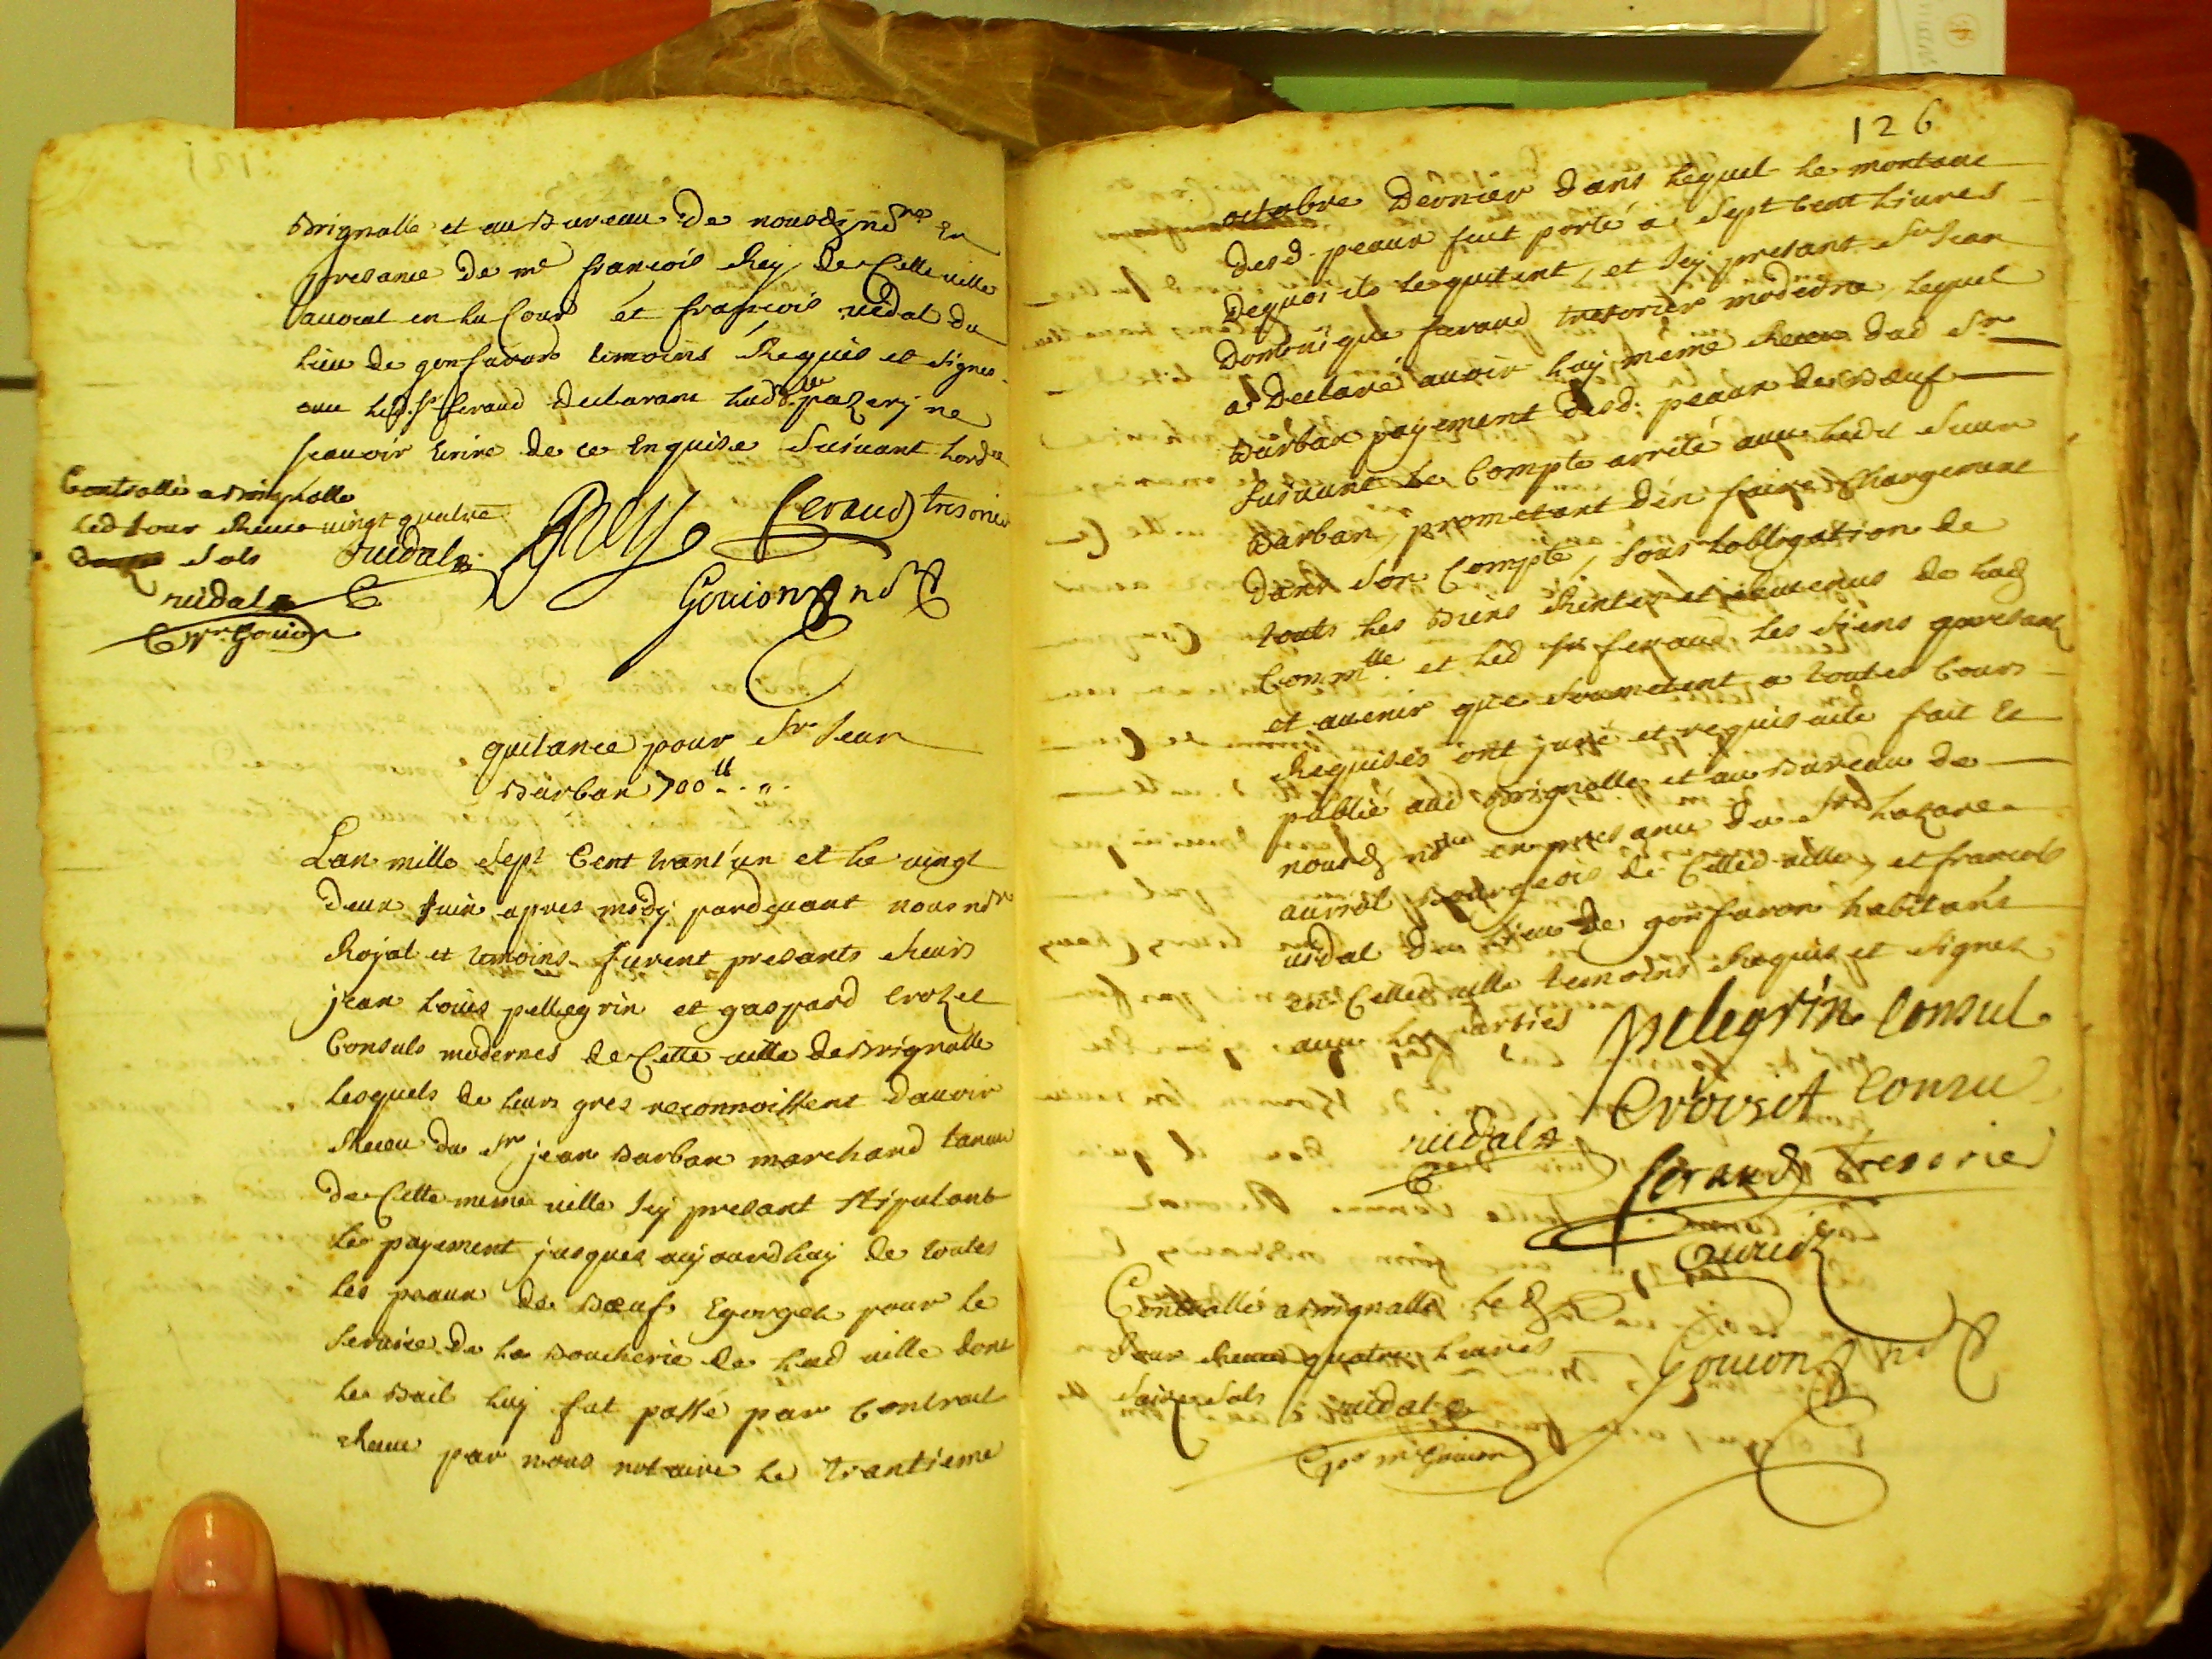 Brignolle et au Bureau de nousd. nre En
presance de me francois Rey, de Cette ville
avocat en la Cour et francois vidal du
lieu de gonfaron temoins Requis et signes
avec led. sr feraud declarant lad. dlle pazery ne
scavoir Ecrire de ce Enquise suivant lordce
Controllé a Brignolle
led jour Receu vingt quatre
sols
vidal
pr. mr Gouion
vidal
Rey
feraud tresorier
Gouion nre
quitance pour sr Jean
Barban 700 ll
Lan mille sept Cent trant'un et le vingt
deux Juin apres midy pardevant nous nre
Royal et temoins furent presants sieurs
jean louis pellegrin et gaspard crozet
Consuls modernes de Cette ville de Brignolle
lesquels de leurs gres reconnoissent d'avoir
Receu du sr jean Barban marchand taneur
de Cette meme ville Icy presant stipulant
le payement jusques aujourdhuy de toutes
les peaux de Bœufs Egorges pour le
service de la Boucherie de lad ville dont
le Bail luy fut passé par Contrat
Receu par nous notaire le trantieme
126
octobre Dernier dans lequel le montant
desd. peaux fut porté a sept Cent livres
dequoi ils le quitent, et Icy presant sr Jean
Dominique feraud tresorier moderne, lequel
a declaré avoir luy meme Receu dud sr
Barban payement desd. peaux de Bœuf
suivant le Compte arrêté avec ledit sieur
Barban, prometant d'en faire Chargement
dans son Compte, sous l'obligation de
touts les Biens Rentes et Revenus de lad
Commté et led sr feraud les siens presants
et avenir que soumetent a toutes Cours
Requises ont juré et requis acte fait et
publié aud Brignolle et au Bureau de
nousd nre en presance du sr lazare
Bourgeois de Cetted ville, et francois
vidal du lieu de gonfaron habitant
en Cetted ville temoins Requis et signes
avec les parties
pelegrin Consul
Consu
vidal
feraud Tresorier
Gouion nre
Controllé a Brignolle led
Jour Receu quatre livres
saize sols
vidal
pr mr Gouion